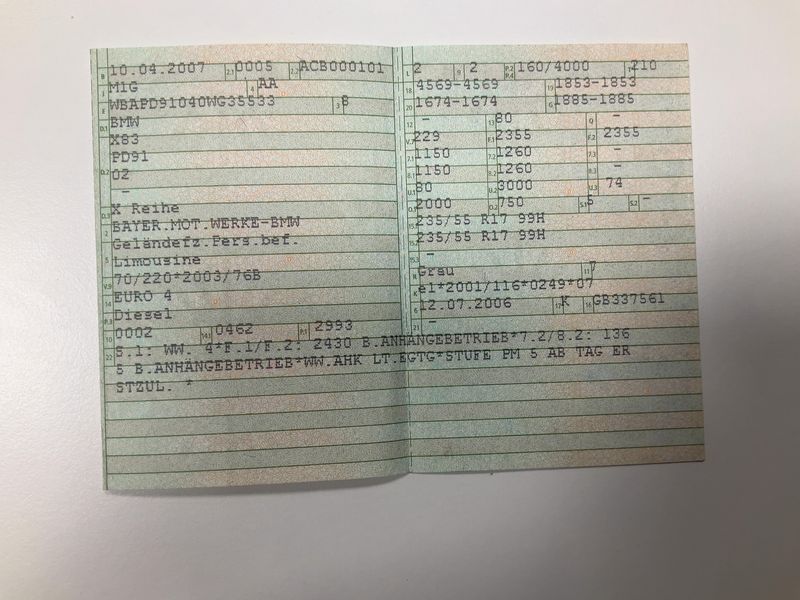 B 10.04.2007 2.1 0005 2.2 ACB000101
J M1G 4 AA
E WBAPD91040WG35533 3 8
D.1 BMW
X83
D.2 PD91
02
-
D.3 X Reihe
2 BAYER.MOT.WERKE-BMW
Geländefz.Pers.bef.
5 Limousine
V.9 70/220*2003/76B
14 EURO 4
P.3 Diesel
10 0002 14.1 0462 P.1 2993
L 2 9 2 P.2 P.4 160/4000 T 210
18 4569-4569 19 1853-1853
20 1674-1674 G 1885-1885
12 - 13 80 Q -
V.7 229 F.1 2355 F.2 2355
7.1 1150 7.2 1260 7.3 -
8.1 1150 8.2 1260 8.3 -
U.1 80 U.2 3000 U.3 74
O.1 2000 O.2 750 S.1 5 S.2 -
15.1 235/55 R17 99H
15.2 235/55 R17 99H
15.3 -
R Grau 11 7
K e1*2001/116*0249*07
6 12.07.2006 17 K 16 GB337561
21 -
22 S.1: WW. 4*F.1/F.2: 2430 B.ANHÄNGEBETRIEB*7.2/8.2: 136
5 B.ANHÄNGEBETRIEB*WW.AHK LT.EGTG*STUFE PM 5 AB TAG ER
STZUL. *